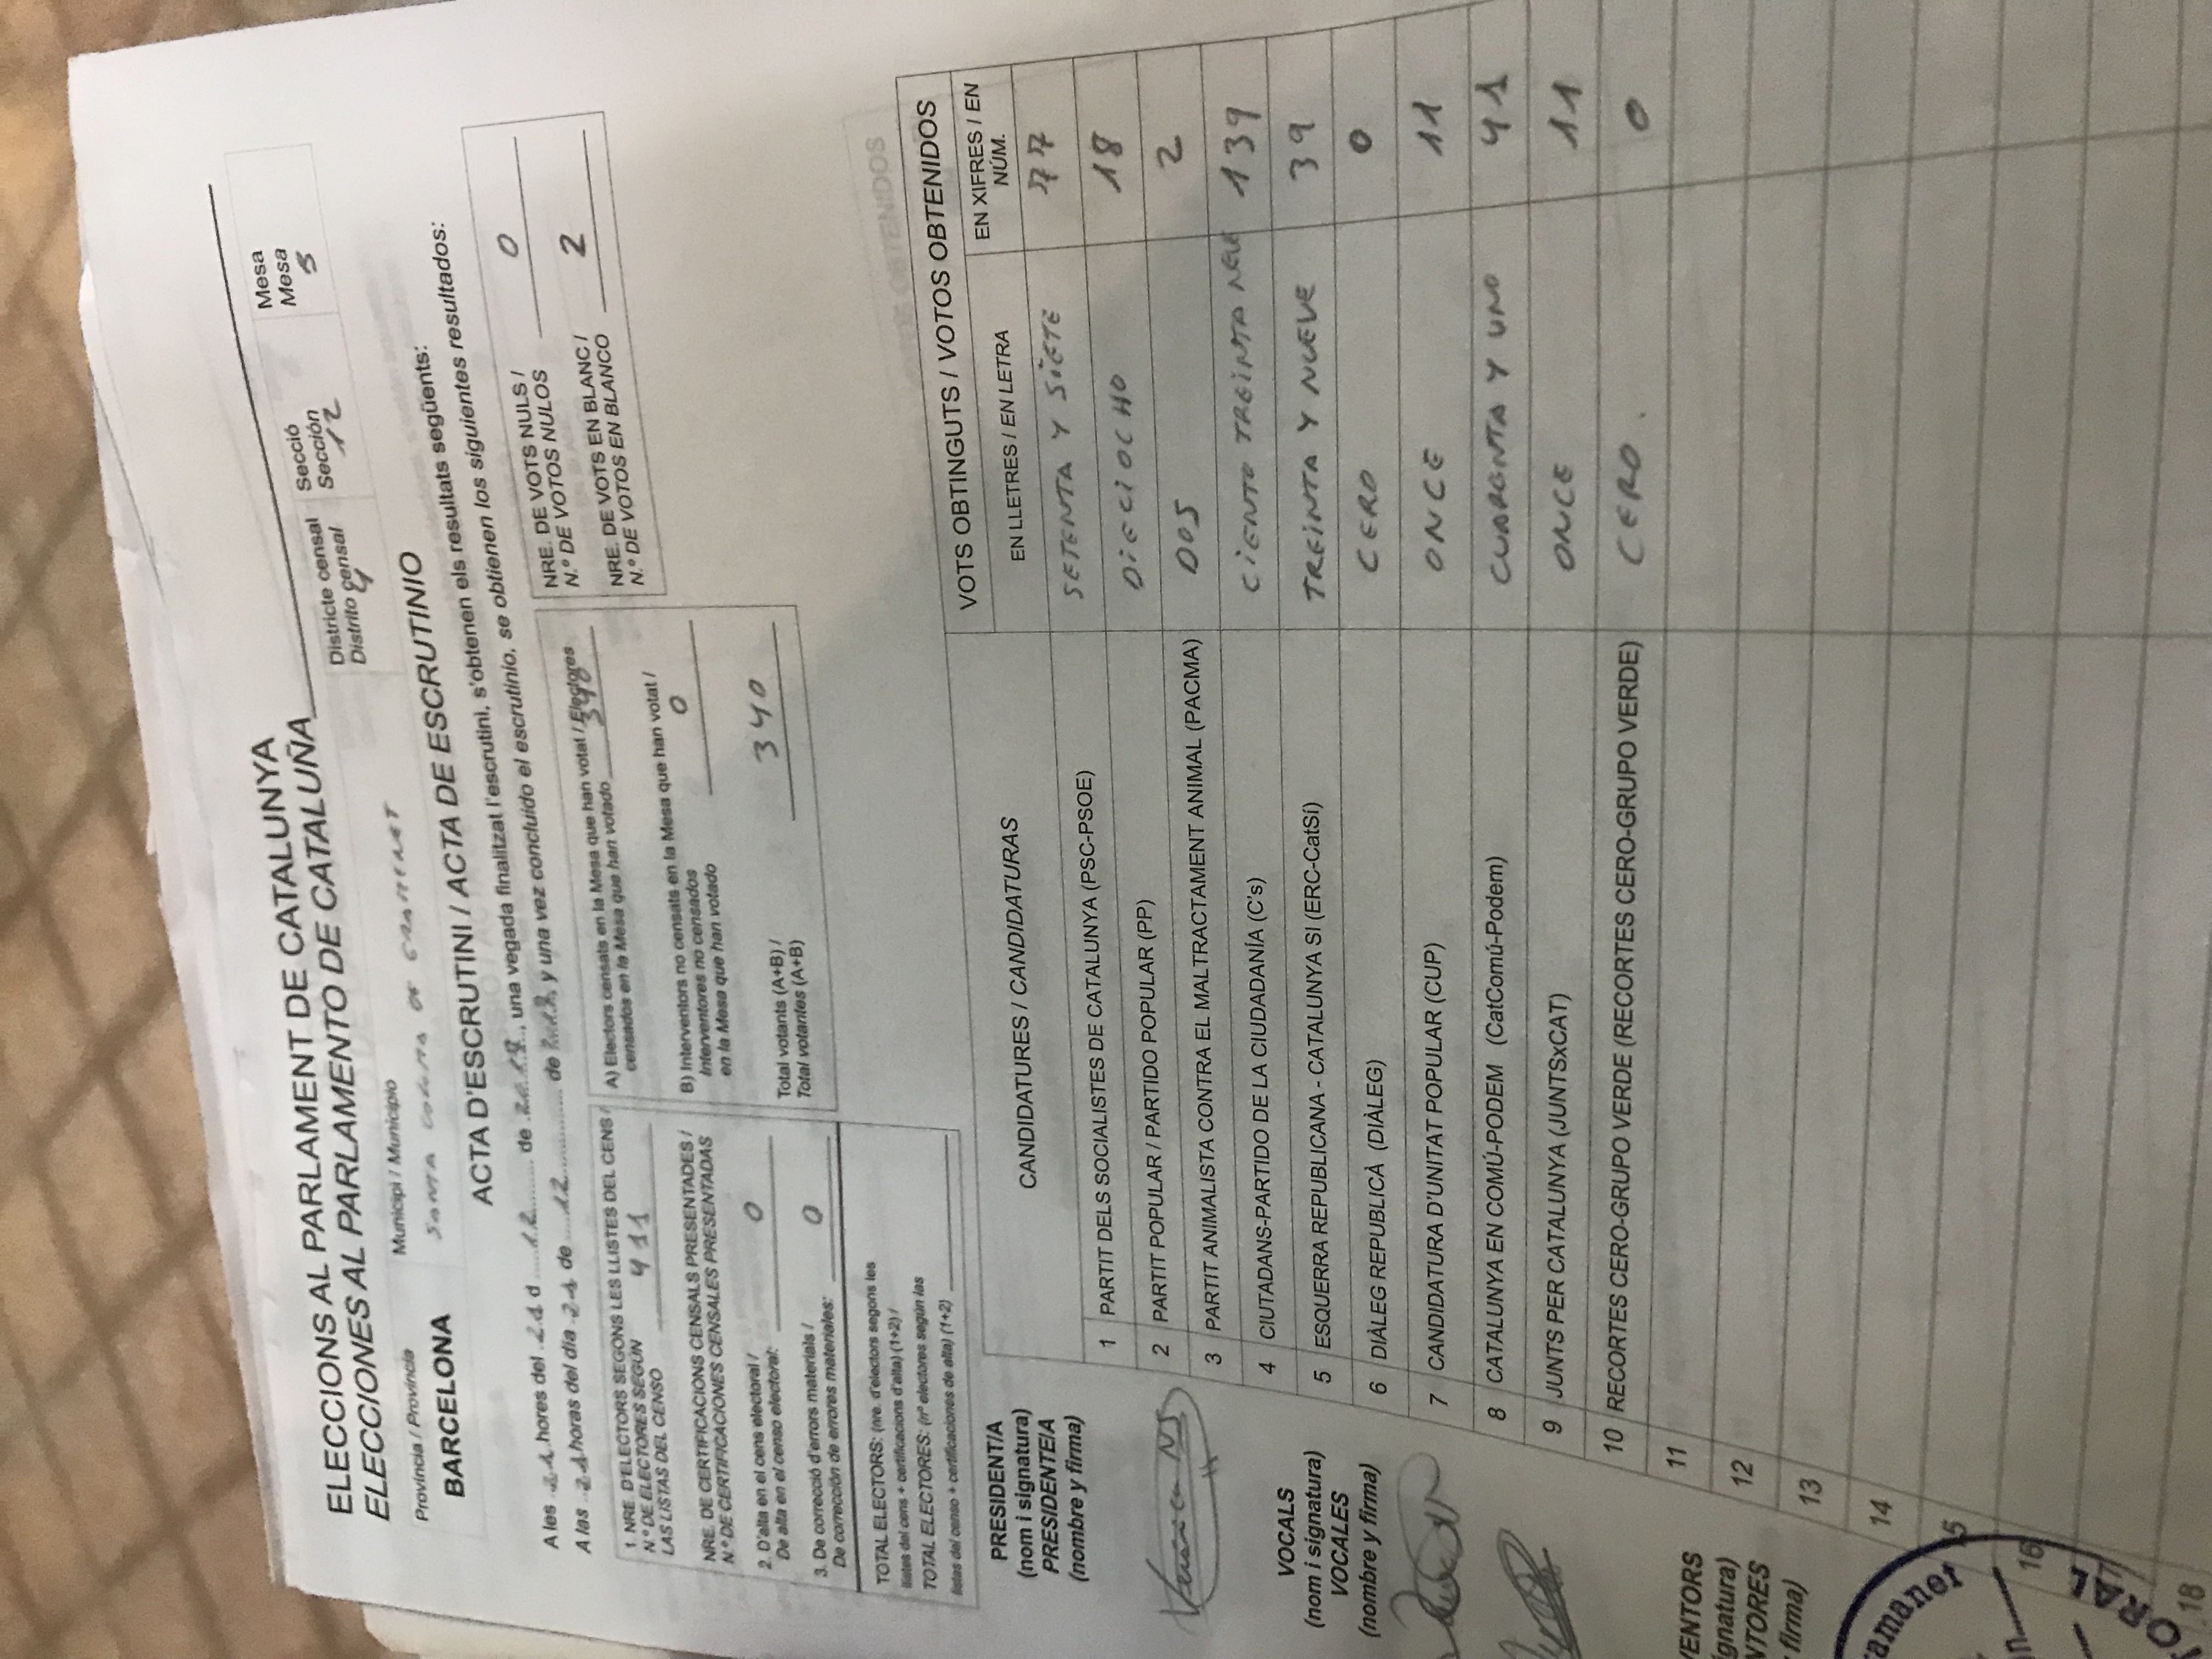 ELECCIONS AL PARLAMENT DE CATALUNYA
ELECCIONES AL PARLAMENTO DE CATALUÑA
Província / Provincia
BARCELONA
Municipi / Municipio
SANTA COLOMA DE GRAMENET
Districte censal
Distrito censal
4
Secció
Sección
12
Mesa
Mesa
ACTA D'ESCRUTINI / ACTA DE ESCRUTINIO
A les 21 hores del 21 d 12 de 2017, una vegada finalitzat l'escrutini, s'obtenen els resultats següents:
A las 21 horas del día 21 de 12 de 2017, y una vez concluido el escrutinio, se obtienen los siguientes resultados:
1. NRE. D'ELECTORS SEGONS LES LLISTES DEL CENS /
N.º DE ELECTORES SEGÚN
LAS LISTAS DEL CENSO 411
NRE. DE CERTIFICACIONS CENSALS PRESENTADES /
N.º DE CERTIFICACIONES CENSALES PRESENTADAS
2. D'alta en el cens electoral /
De alta en el censo electoral: 0
3. De correcció d'errors materials /
De corrección de errores materiales: 0
TOTAL ELECTORS: (nre. d'electors segons les
llistes del cens + certificacions d'alta) (1+2) /
TOTAL ELECTORES: (nº electores según las
listas del censo + certificaciones de alta) (1+2)
A) Electors censats en la Mesa que han votat / Electores
censados en la Mesa que han votado 340
B) Interventors no censats en la Mesa que han votat /
Interventores no censados
en la Mesa que han votado 0
Total votants (A+B) /
Total votantes (A+B) 340
NRE. DE VOTS NULS /
N.º DE VOTOS NULOS 0
NRE. DE VOTS EN BLANC /
N.º DE VOTOS EN BLANCO 2
PRESIDENT/A
(nom i signatura)
PRESIDENTE/A
(nombre y firma)
VOCALS
(nom i signatura)
VOCALES
(nombre y firma)
VENTORS
ignatura)
NTORES
firma)
CANDIDATURES / CANDIDATURAS
VOTS OBTINGUTS / VOTOS OBTENIDOS
EN LLETRES / EN LETRA
EN XIFRES / EN
NÚM.
1 PARTIT DELS SOCIALISTES DE CATALUNYA (PSC-PSOE) SETENTA Y SIETE 77
2 PARTIT POPULAR / PARTIDO POPULAR (PP) DIECIOCHO 18
3 PARTIT ANIMALISTA CONTRA EL MALTRACTAMENT ANIMAL (PACMA) DOS 2
4 CIUTADANS-PARTIDO DE LA CIUDADANÍA (C's) CIENTO TREINTA 139
5 ESQUERRA REPUBLICANA - CATALUNYA SI (ERC-CatSí) TREINTA Y NUEVE 39
6 DIÀLEG REPUBLICÀ (DIÀLEG) CERO 0
7 CANDIDATURA D'UNITAT POPULAR (CUP) ONCE 11
8 CATALUNYA EN COMÚ-PODEM (CatComú-Podem) CUARENTA Y UNO 41
9 JUNTS PER CATALUNYA (JUNTSxCAT) ONCE 11
10 RECORTES CERO-GRUPO VERDE (RECORTES CERO-GRUPO VERDE) CERO. 0
11
12
13
14
15
16
17
18
amanet
TORAL